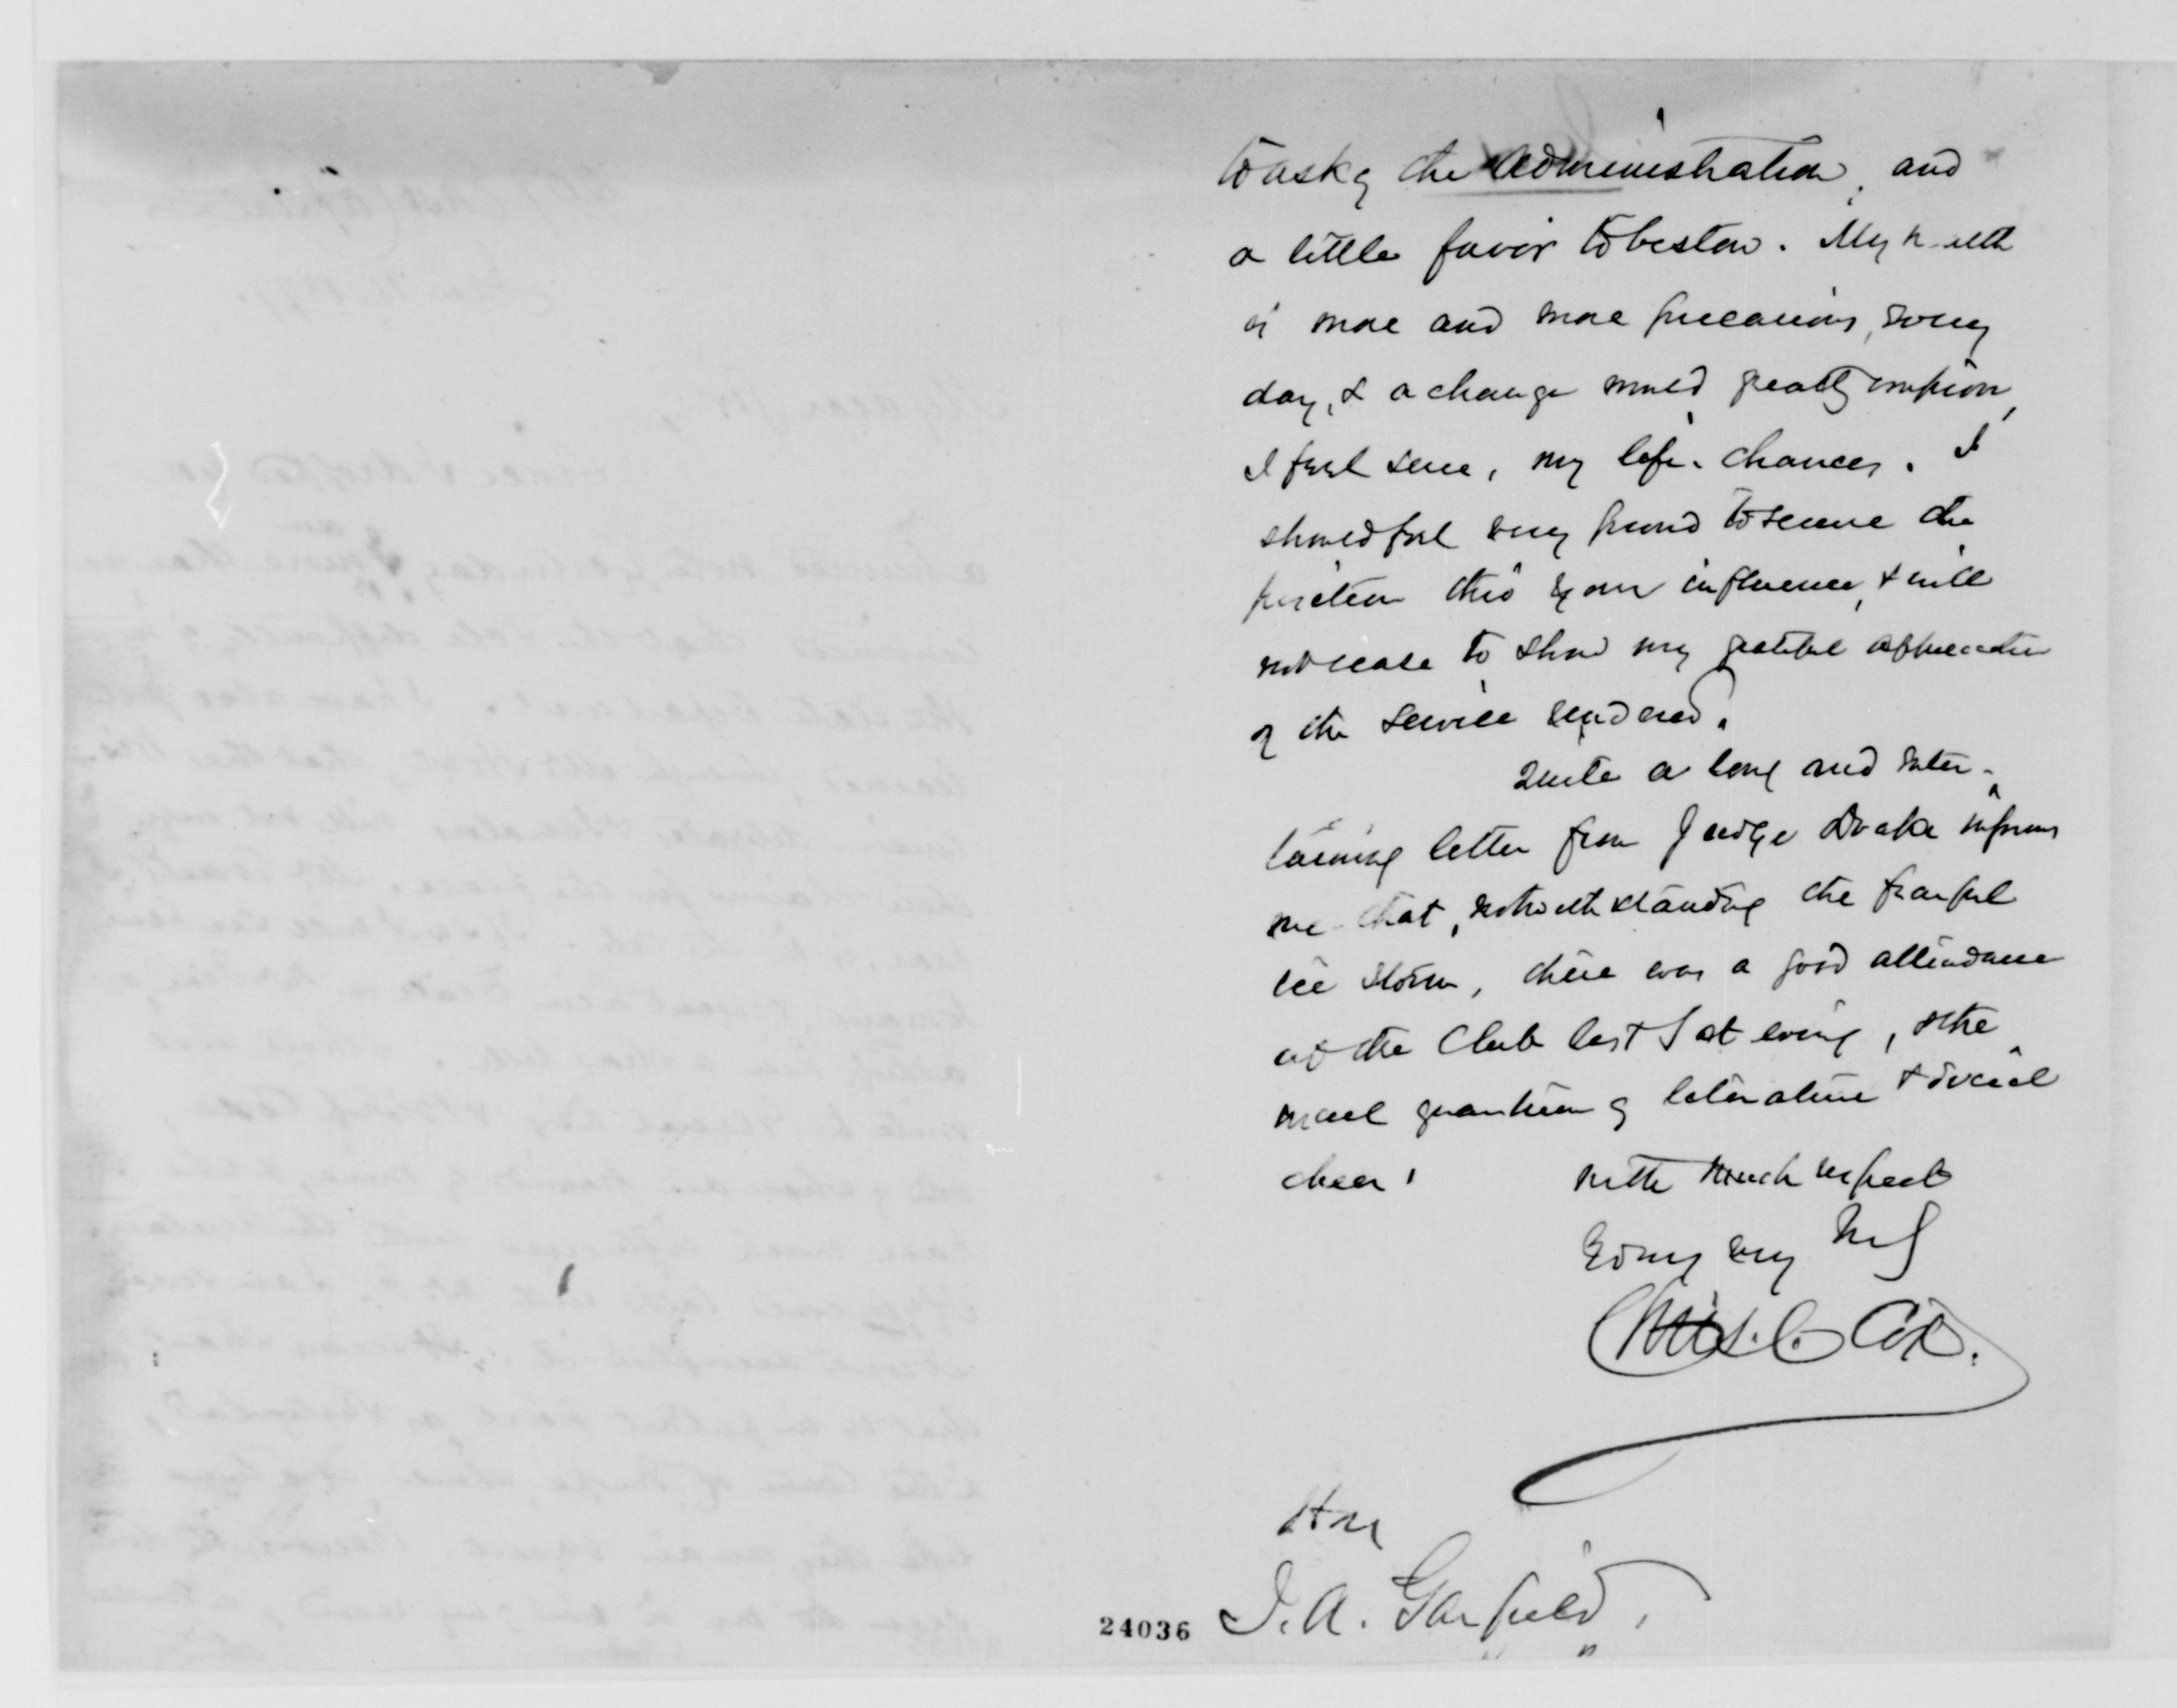 to ask of the Administration, and
a little favor to bestow. My health
is more and more precarious, every
day, & a change would greatly improve,
I feel sure, my life-chances. I
should feel very proud to secure the
position thro' your influence, & will
not cease to show my grateful appreciation
of the service rendered.
Quite a long and enter-
taining letter from Judge Drake informs
me that, notwithstanding the fearful
ice storm, there was a good attendance
at the Club last Sat evening, & the
usual quantum of literature & social
cheer.
With much respect
Yours very truly
Chris. C. Cox.
Hon
J. A. Garfield,
24036